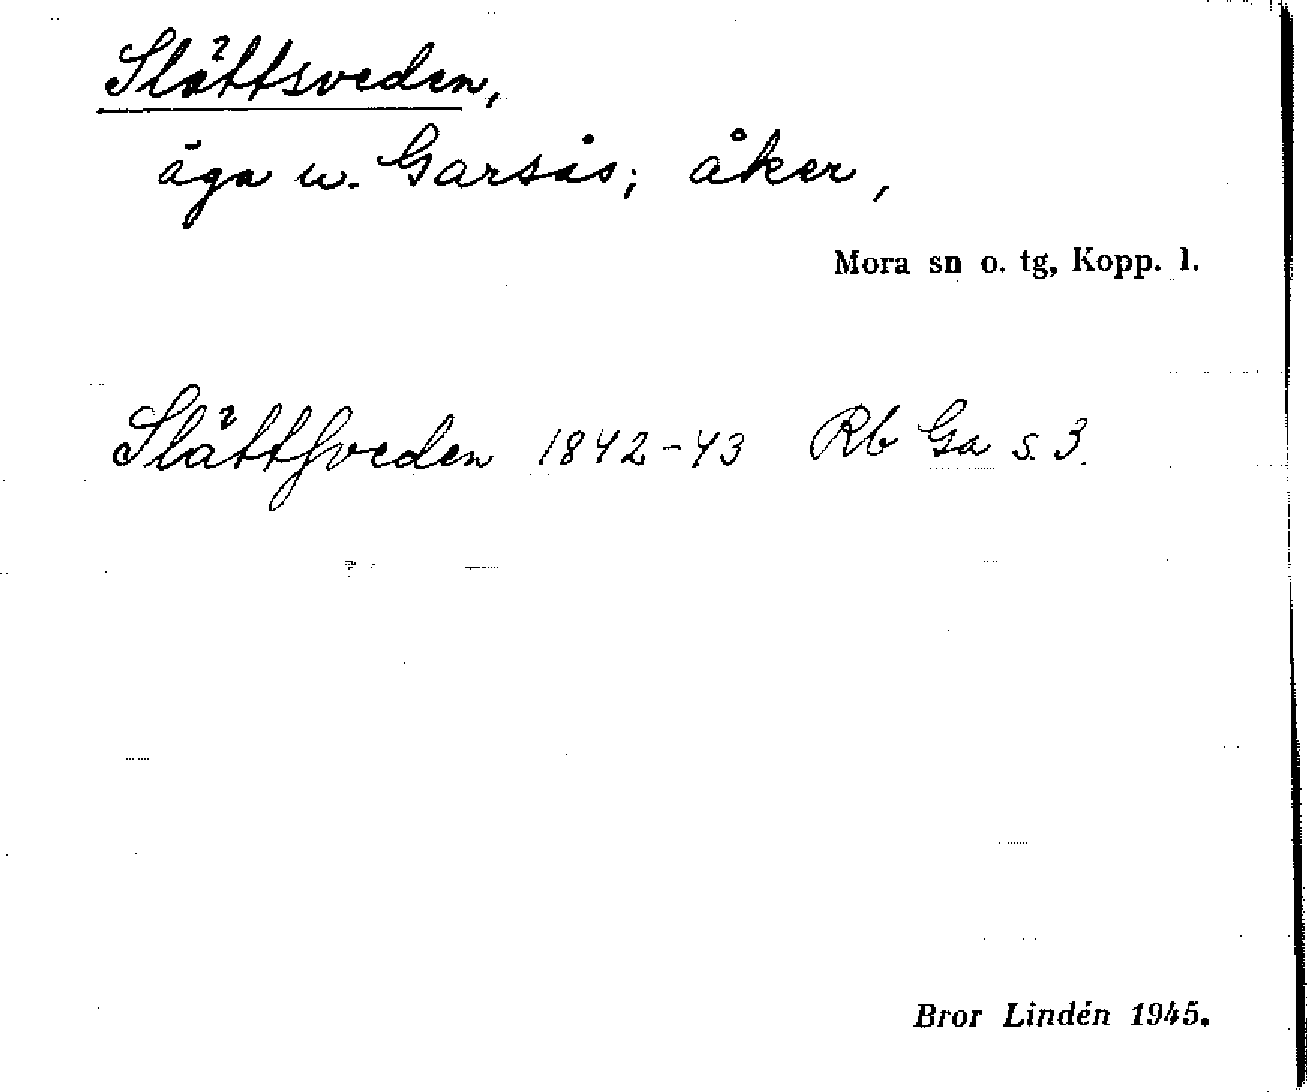 Slättsveden,
äga u. Garsås; åker,
Mora sn o. tg, Kopp. l.
Slättſveden 1842-43 Rb Ga s. 3.
Bror Lindén 1945.